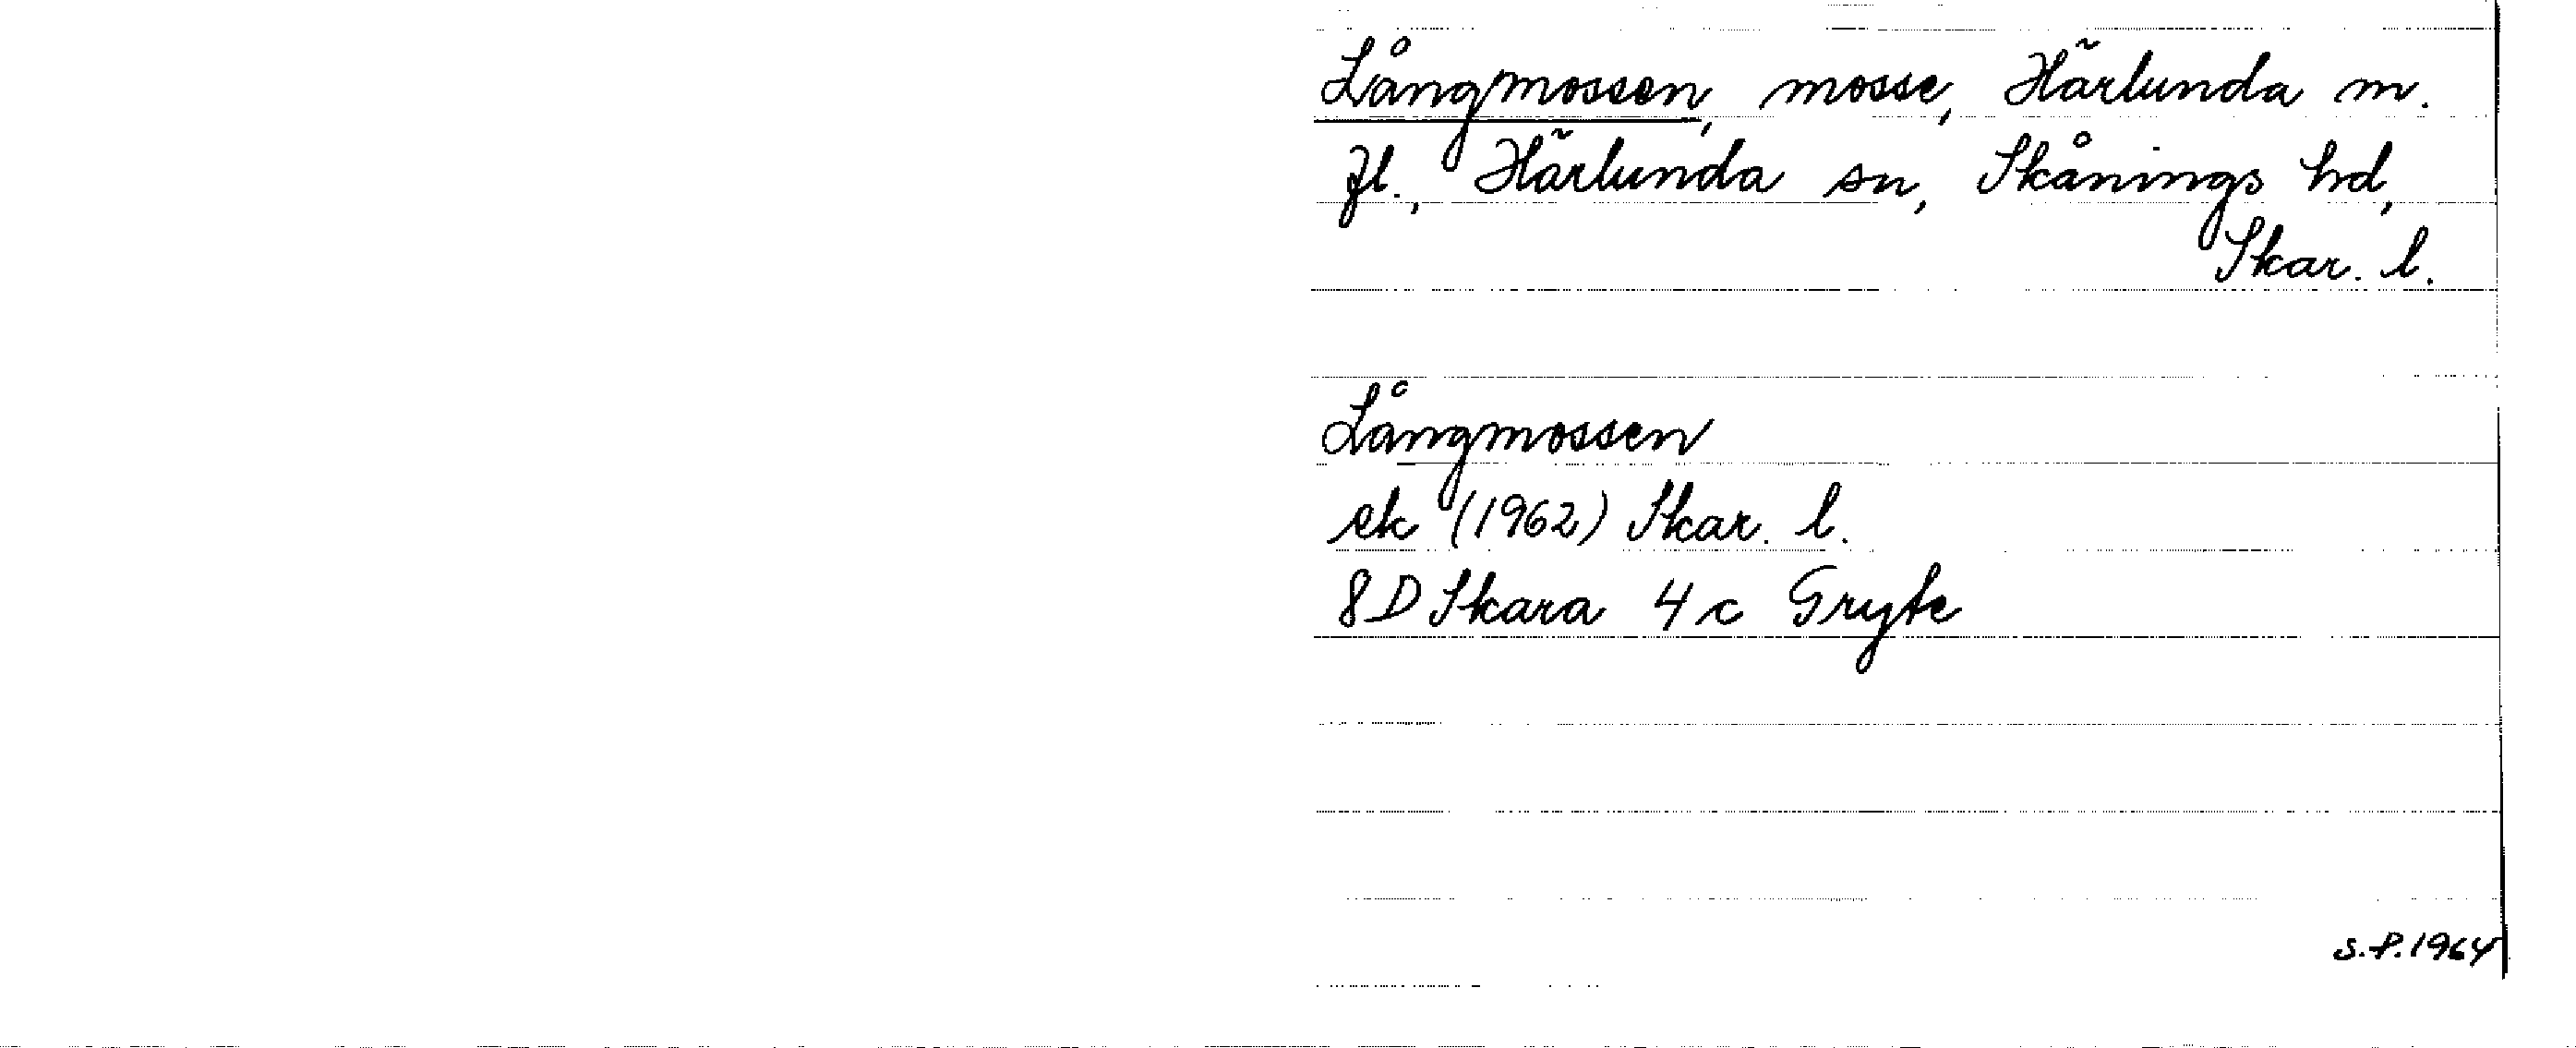 Långmossen, mosse, Härlunda m.
fl., Härlunda sn, Skånings hd,
Skar. l.
Långmossen
ek (1962) Skar. l.
8D Skara 4 c Gryte
S.P. 1964